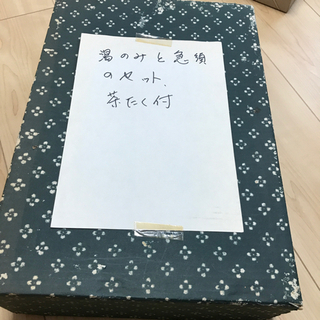 湯のみと急須
のセット.
茶たく付